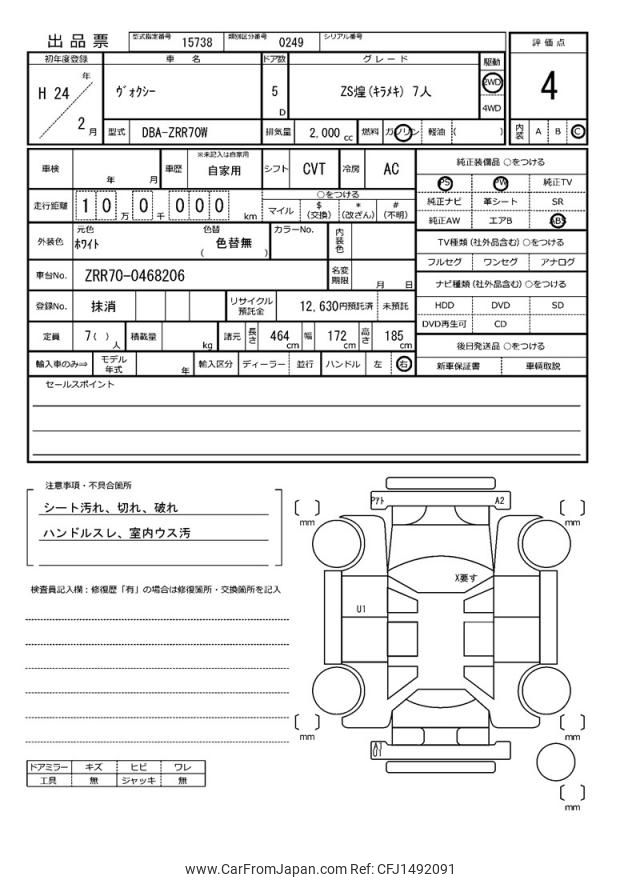 出品票 型式指定番号 15738 類別区分番号 0249 シリアル番号
評価点
初年度登録 車名 ドア数 グレード 駆動
H 24 年 2 月
ヴォクシー
5 D
ZS煌(キラメキ) 7人
2WD
4WD
4
型式 DBA-ZRR70W 排気量 2,000 cc 燃料 ガソリン 軽油 ( )
内装 A B C
車検 年 月 車歴 ※未記入は自家用 自家用 シフト CVT 冷房 AC
走行距離 10 万 0 千 000 km
○をつける
マイル $(交換) *(改ざん) #(不明)
外装色 元色 ホワイト 色替 ( 色替無 ) カラーNo. 内装色
車台No. ZRR70-0468206 名変期限 月 日
登録No. 抹消 リサイクル預託金 12,630円預託済 未預託
定員 7( ) 人 積載量 kg 諸元 長さ 464 cm 幅 172 cm 高さ 185 cm
輸入車のみ⇒ モデル年式 年 輸入区分 ディーラー 並行 ハンドル 左 右
純正装備品 ○をつける
PS PW 純正TV
純正ナビ 革シート SR
純正AW エアB ABS
TV種類(社外品含む)○をつける
フルセグ ワンセグ アナログ
ナビ種類(社外品含む)○をつける
HDD DVD SD
DVD再生可 CD
後日発送品 ○をつける
新車保証書 車輌取説
セールスポイント
注意事項・不具合箇所
シート汚れ、切れ、破れ
ハンドルスレ、室内ウス汚
検査員記入欄:修復歴「有」の場合は修復箇所・交換箇所を記入
ドアミラー キズ ヒビ ワレ
工具 無 ジャッキ 無
Pｱﾄ A2
mm mm
X要す
U1
mm mm
A1
U1
mm
www.CarFromJapan.com Ref: CFJ1492091